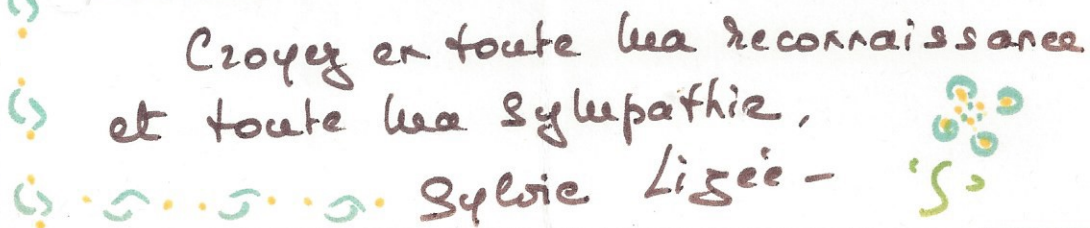 Croyez en toute ma reconnaissance
et toute ma sympathie,
Sylvie Lizée -